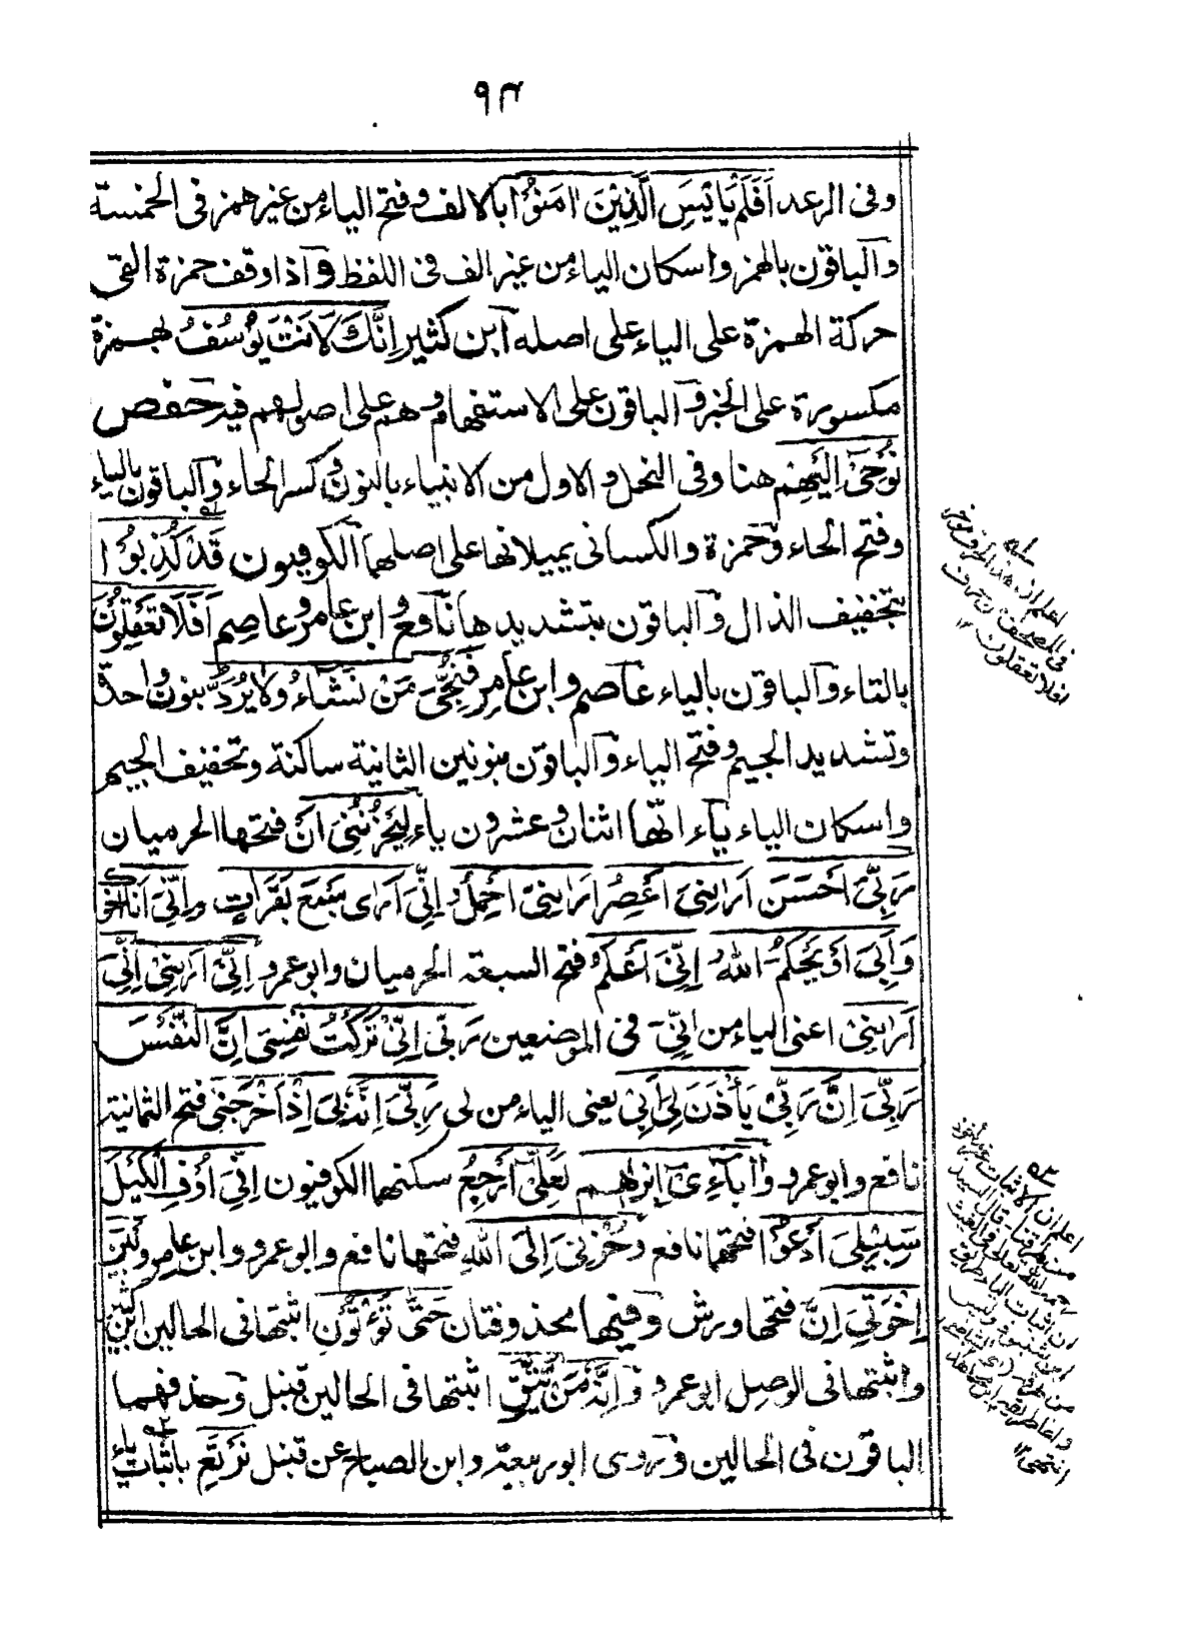 ٩٣
وفى الرعد اَفَلَمْ يَايْئَسِ الَّذِيْنَ اٰمَنُوْا بالالف وفتح الياء من غير همز فى الخمسة
والباقون بالهمز واسكان الياء من غير الف فى اللفظ واذا وقف حمزة القى
حركة الهمزة على الياء على اصله ابن كثير اِنَّكَ لَاَنْتَ يُوْسُفُ بهمزة
مكسورة على الخبر والباقون على الاستفهام وهم على اصولهم فيه حفص
نُوْحِىْٓ اِلَيْهِمْ هنا وفى النحل والاول من الانبياء بالنون وكسر الحاء والباقون بالياء
وفتح الحاء وحمزة والكسائى يميلانها على اصلهما الكوفيون قَدْ كُذِبُوْا
بتخفيف الذال والباقون بتشديدها نافع وابن عامر وعاصم اَفَلَا تَعْقِلُوْنَ
بالتاء والباقون بالياء عاصم وابن عامر فَنُجِّىَ مَنْ نَّشَآءُ وَلَا يُرَدُّ بنون واحدة
وتشديد الجيم وفتح الياء والباقون بنونين الثانية ساكنة وتخفيف الجيم
واسكان الياء ياءاتها اثنان وعشرون ياء لَيَحْزُنُنِىْٓ اَنْ فتحها الحرميان
رَبِّىْٓ اَحْسَنَ اَرٰىنِىْٓ اَعْصِرُ اَرٰىنِىْٓ اَحْمِلُ اِنِّىْٓ اَرٰى سَبْعَ بَقَرَاتٍ اِنِّىْٓ اَنَا اَخُوْكَ
وَاَبِىْٓ اَوْ يَحْكُمَ اللّٰهُ اِنِّىْٓ اَعْلَمُ فتح السبعة الحرميان وابو عمرو اِنِّىْٓ اَرٰىنِىْٓ اِنِّىْٓ
اَرٰىنِىْٓ اعنى الياء من اِنِّىْ فى الموضعين رَبِّىْٓ اِنِّىْ تَرَكْتُ نَفْسِىْٓ اِنَّ النَّفْسَ
رَبِّىْٓ اِنَّ رَبِّىْ يَاْذَنَ لِىْٓ اَبِىْ يعنى الياء من لى رَبِّىْٓ اِنَّهٗ بِىْٓ اِذْ اَخْرَجَنِىْ فتح الثمانية
نافع وابو عمرو وَاٰبَآءِىْٓ اِبْرٰهِيْمَ لَعَلِّىْٓ اَرْجِعُ سكنهما الكوفيون اِنِّىْٓ اُوْفِى الْكَيْلَ
سَبِيْلِىْٓ اَدْعُوْا فتحهما نافع وَحُزْنِىْٓ اِلَى اللّٰهِ فتحها نافع وابو عمرو وابن عامر وَبَيْنَ
اِخْوَتِىْٓ اِنَّ فتحها ورش وفيها محذوفتان حَتّٰى تُؤْتُوْنِ اثبتها فى الحالين ابن كثير
واثبتها فى الوصل ابو عمرو وَاِنَّهٗ مَنْ يَّتَّقِ اثبتها فى الحالين قنبل وحذفهما
الباقون فى الحالين وروى ابو ربيعة وابن الصباح عن قنبل نَرْتَعِ باثبات ياء
اعلم ان هذا الحرف مؤخر
فى المصحف من حرف
افلا تعقلون ١٢
اعلم ان الاثبات